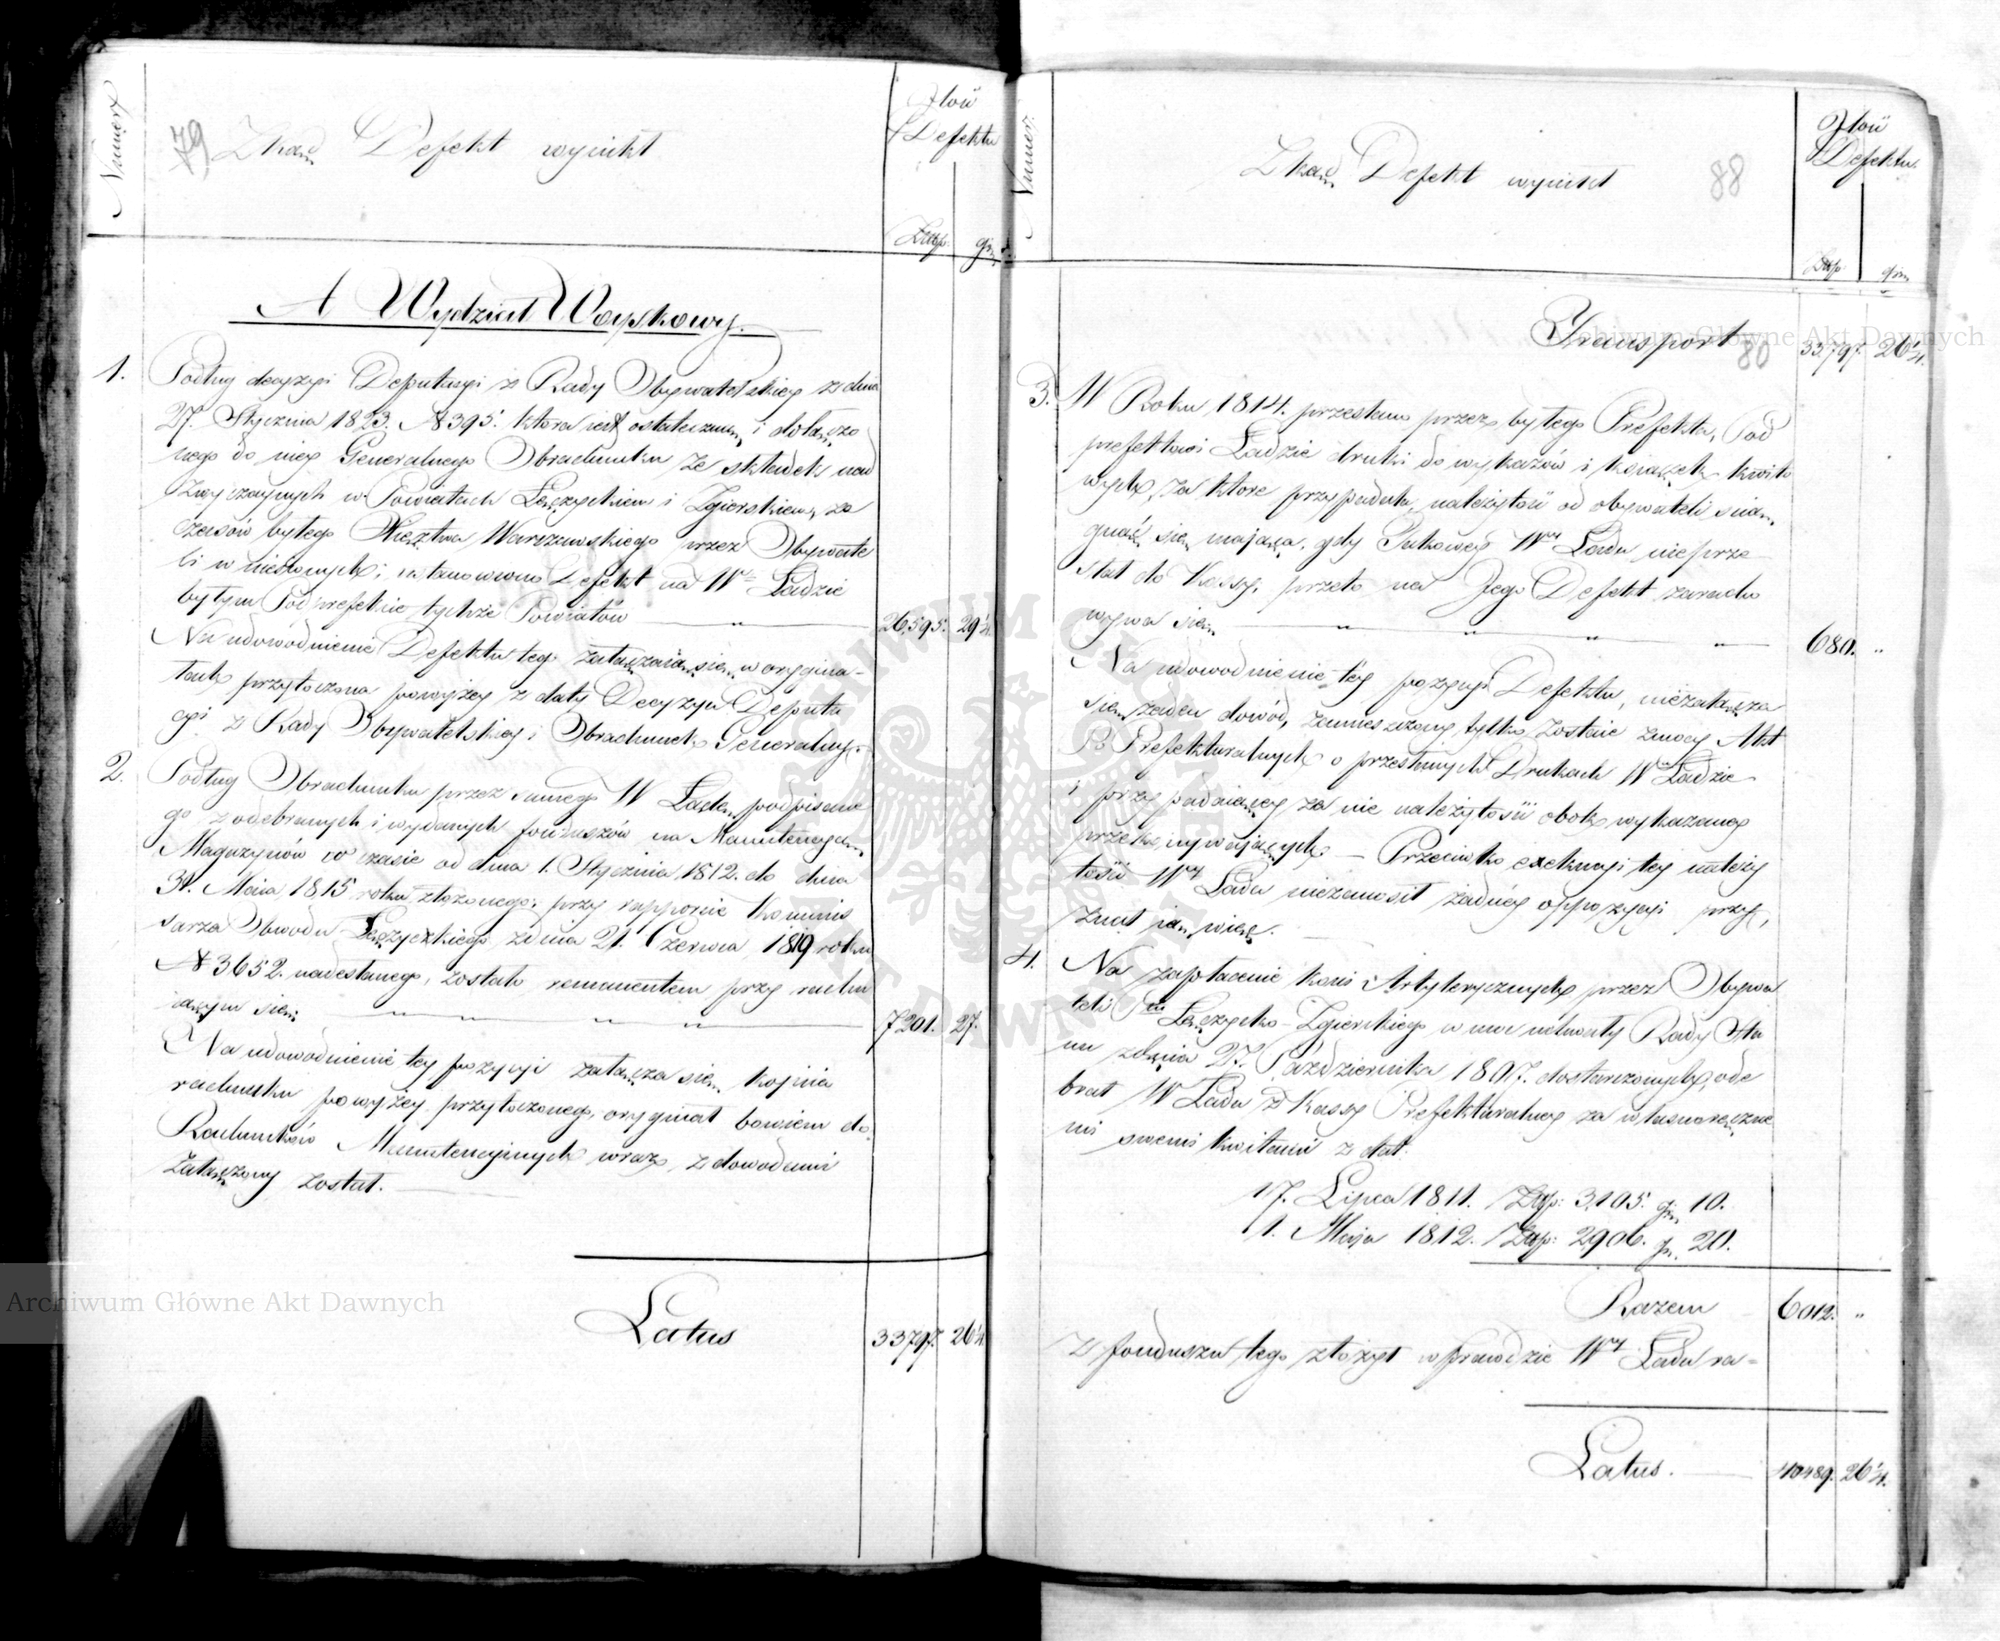 Numer
79
Zkąd Defekt wynikł
Ilość
Defektu
Złłp.
gr.
A Wydział Woyskowy.
1. Podług decyzyi Deputacyi z Rady Obywatelskiey z dnia
27. Stycznia 1823. N 395. która iest ostateczną, i dołączo
nego do niey Generalnego Obrachunku ze składek nad
zwyczaynych w Powiatach Łęczyckiem i Zgierskiem, za
czasów byłego Xięztwa Warszawskiego przez Obywate
li wniesionych; ustanowiono Defekt na Wm Ladzie
byłym Podprefekcie tychże Powiatów — „ — 26,595. 29¼
Na udowodnienie Defektu tego załączaią się w orygina-
łach przytoczona powyżey z daty Decyzya Deputa
cyi z Rady Obywatelskiey i Obrachunek Generalny.
2. Podług Obrachunku przez samego W Ladę podpisane
go z odebranych i wydanych funduszów na Manutencyą
Magazynów w czasie od dnia 1. Stycznia 1812. do dnia
31. Maia 1815 roku złożonego; przy rapporcie Kommis
sarza Obwodu Łęczyckiego z dnia 21. Czerwca 1819 roku
N 3652. nadesłanego, zostało remanentem przy rachu
iącym się — „ „ „ „ — 7201. 27.
Na udowodnienie tey pozycyi załącza się kopiia
rachunku powyżey przytoczonego, oryginał bowiem do
Rachunków Manutencyinych wraz z dowodami
załączony został. —
Latus 33797. 26¼
Archiwum Główne Akt Dawnych
Numer.
Zkąd Defekt wynikł
88
Ilość
Defektu.
Złłp
gr.
Transport 33,797. 26¼.
Archiwum Główne Akt Dawnych
80
3. W Roku 1814. przesłano przez byłego Prefekta, Pod
prefektowi Ladzie druki do wykazów i książek kwito
wych, za które przypadała należytość od obywateli ścią
gnąć się maiąca, gdy takowey Wny Lada nieprze
słał do Kassy, przeto na Jego Defekt zaracho
wywa się — „ „ „ „ — 680. „
Na udowodnienie tey pozycyi Defektu, niezałącza
się żaden dowód, zamieszczony tylko zostaie z mocy Akt
B. Prefekturalnych o przesłanych Drukach Wu Ladzie
i przypadaiącey za nie należytości obok wykazaney
przekonywaiących. — Przeciwko exekucyi tey należy
tości Wny Lada niezanosił żadney oppozycyi przy
znał ią więc.
4. Na zapłacenie koni Artylerycznych przez Obywa
teli Ptu Łęczycko-Zgierskiego w moc uchwały Rady Sta
nu z dnia 27. Października 1807. dostarczonych, ode
brał W Lada z Kassy Prefekturalney za własnoręczne
mi swemi kwitami z dat.
17. Lipca 1811. Złłp: 3,105. gr. 10.
1. Maja 1812. Złłp: 2906. gr. 20.
Razem 6012. „
Z funduszu tego złożył wprawdzie Wny Lada ra-
Latus. — 40489. 26¼.
ARCHIWUM GŁÓWNE AKT DAWNYCH